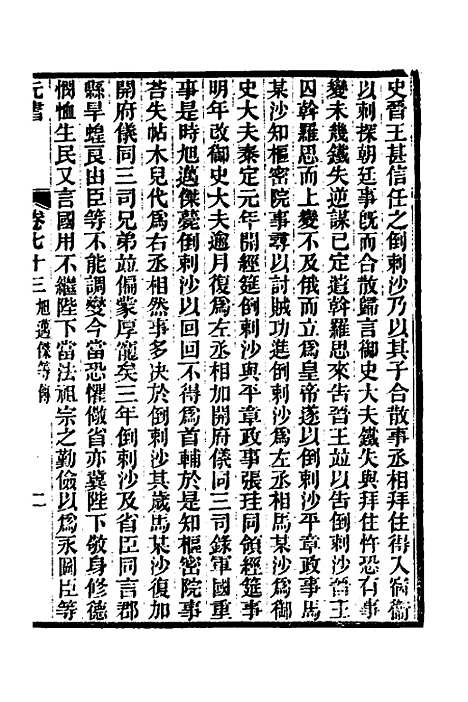 史晉王甚信任之倒剌沙乃以其子合散事丞相拜住得入宿衞
以刺探朝廷事旣而合散歸言御史大夫鐵失與拜住忤恐有事
變未幾鐵失逆謀已定遣斡羅思來告晉王並以告倒剌沙晉王
囚斡羅思而上變不及俄而立爲皇帝遂以倒剌沙平章政事馬
某沙知樞密院事尋以討賊功進倒剌沙爲左丞相馬某沙爲御
史大夫泰定元年開經筵倒剌沙與平章政事張珪同領經筵事
明年改御史大夫逾月復爲左丞相加開府儀同三司錄軍國重
事是時旭邁傑薨倒剌沙以回回不得爲首輔於是知樞密院事
荅失帖木兒代爲右丞相然事多决於倒剌沙其歲馬某沙復加
開府儀同三司兄弟竝偏蒙厚寵矣三年倒剌沙及省臣同言郡
縣旱蝗良由臣等不能調變今當恐懼儆省亦冀陛下敬身修德
憫恤生民又言國用不繼陛下當法祖宗之勤儉以爲永圖臣等
元書
卷七十三 旭邁傑等傳
二